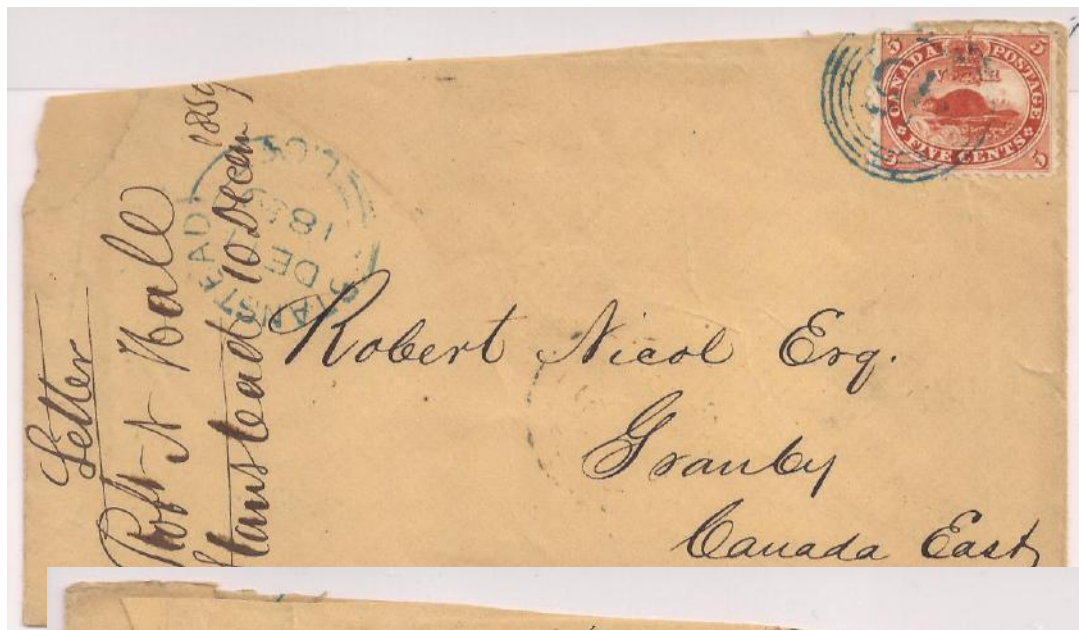 CANADA POSTAGE
FIVE CENTS
5 5
5 5
STANSTEAD
DE
18
L.C.
Letter
Robt N Hall
Stanstead 10 Decem 1859
Robert Nicol Esq.
Granby
Canada East